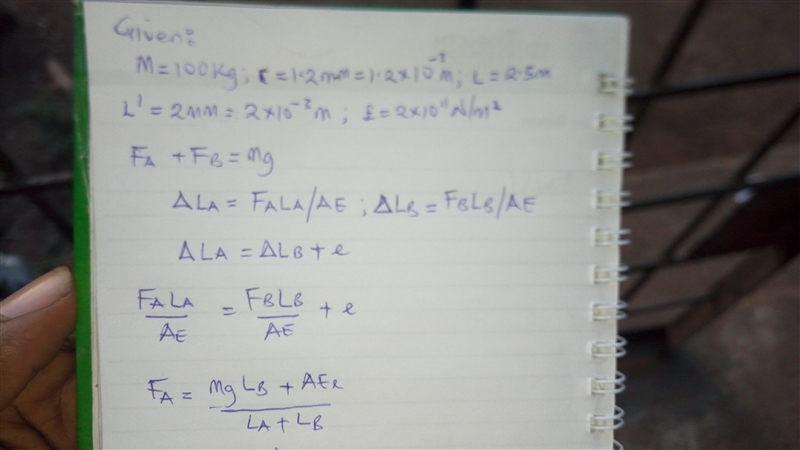 Given:
M=100kg; r=1.2mm=1.2×10⁻³m; L=2.5m
L' = 2mm = 2×10⁻³m; E=2×10¹¹N/m²
FA + FB = mg
ΔLA = FALA/AE; ΔLB = FBLB/AE
ΔLA = ΔLB + e
FALA/AE = FBLB/AE + e
FA = mgLB + AEe / LA + LB